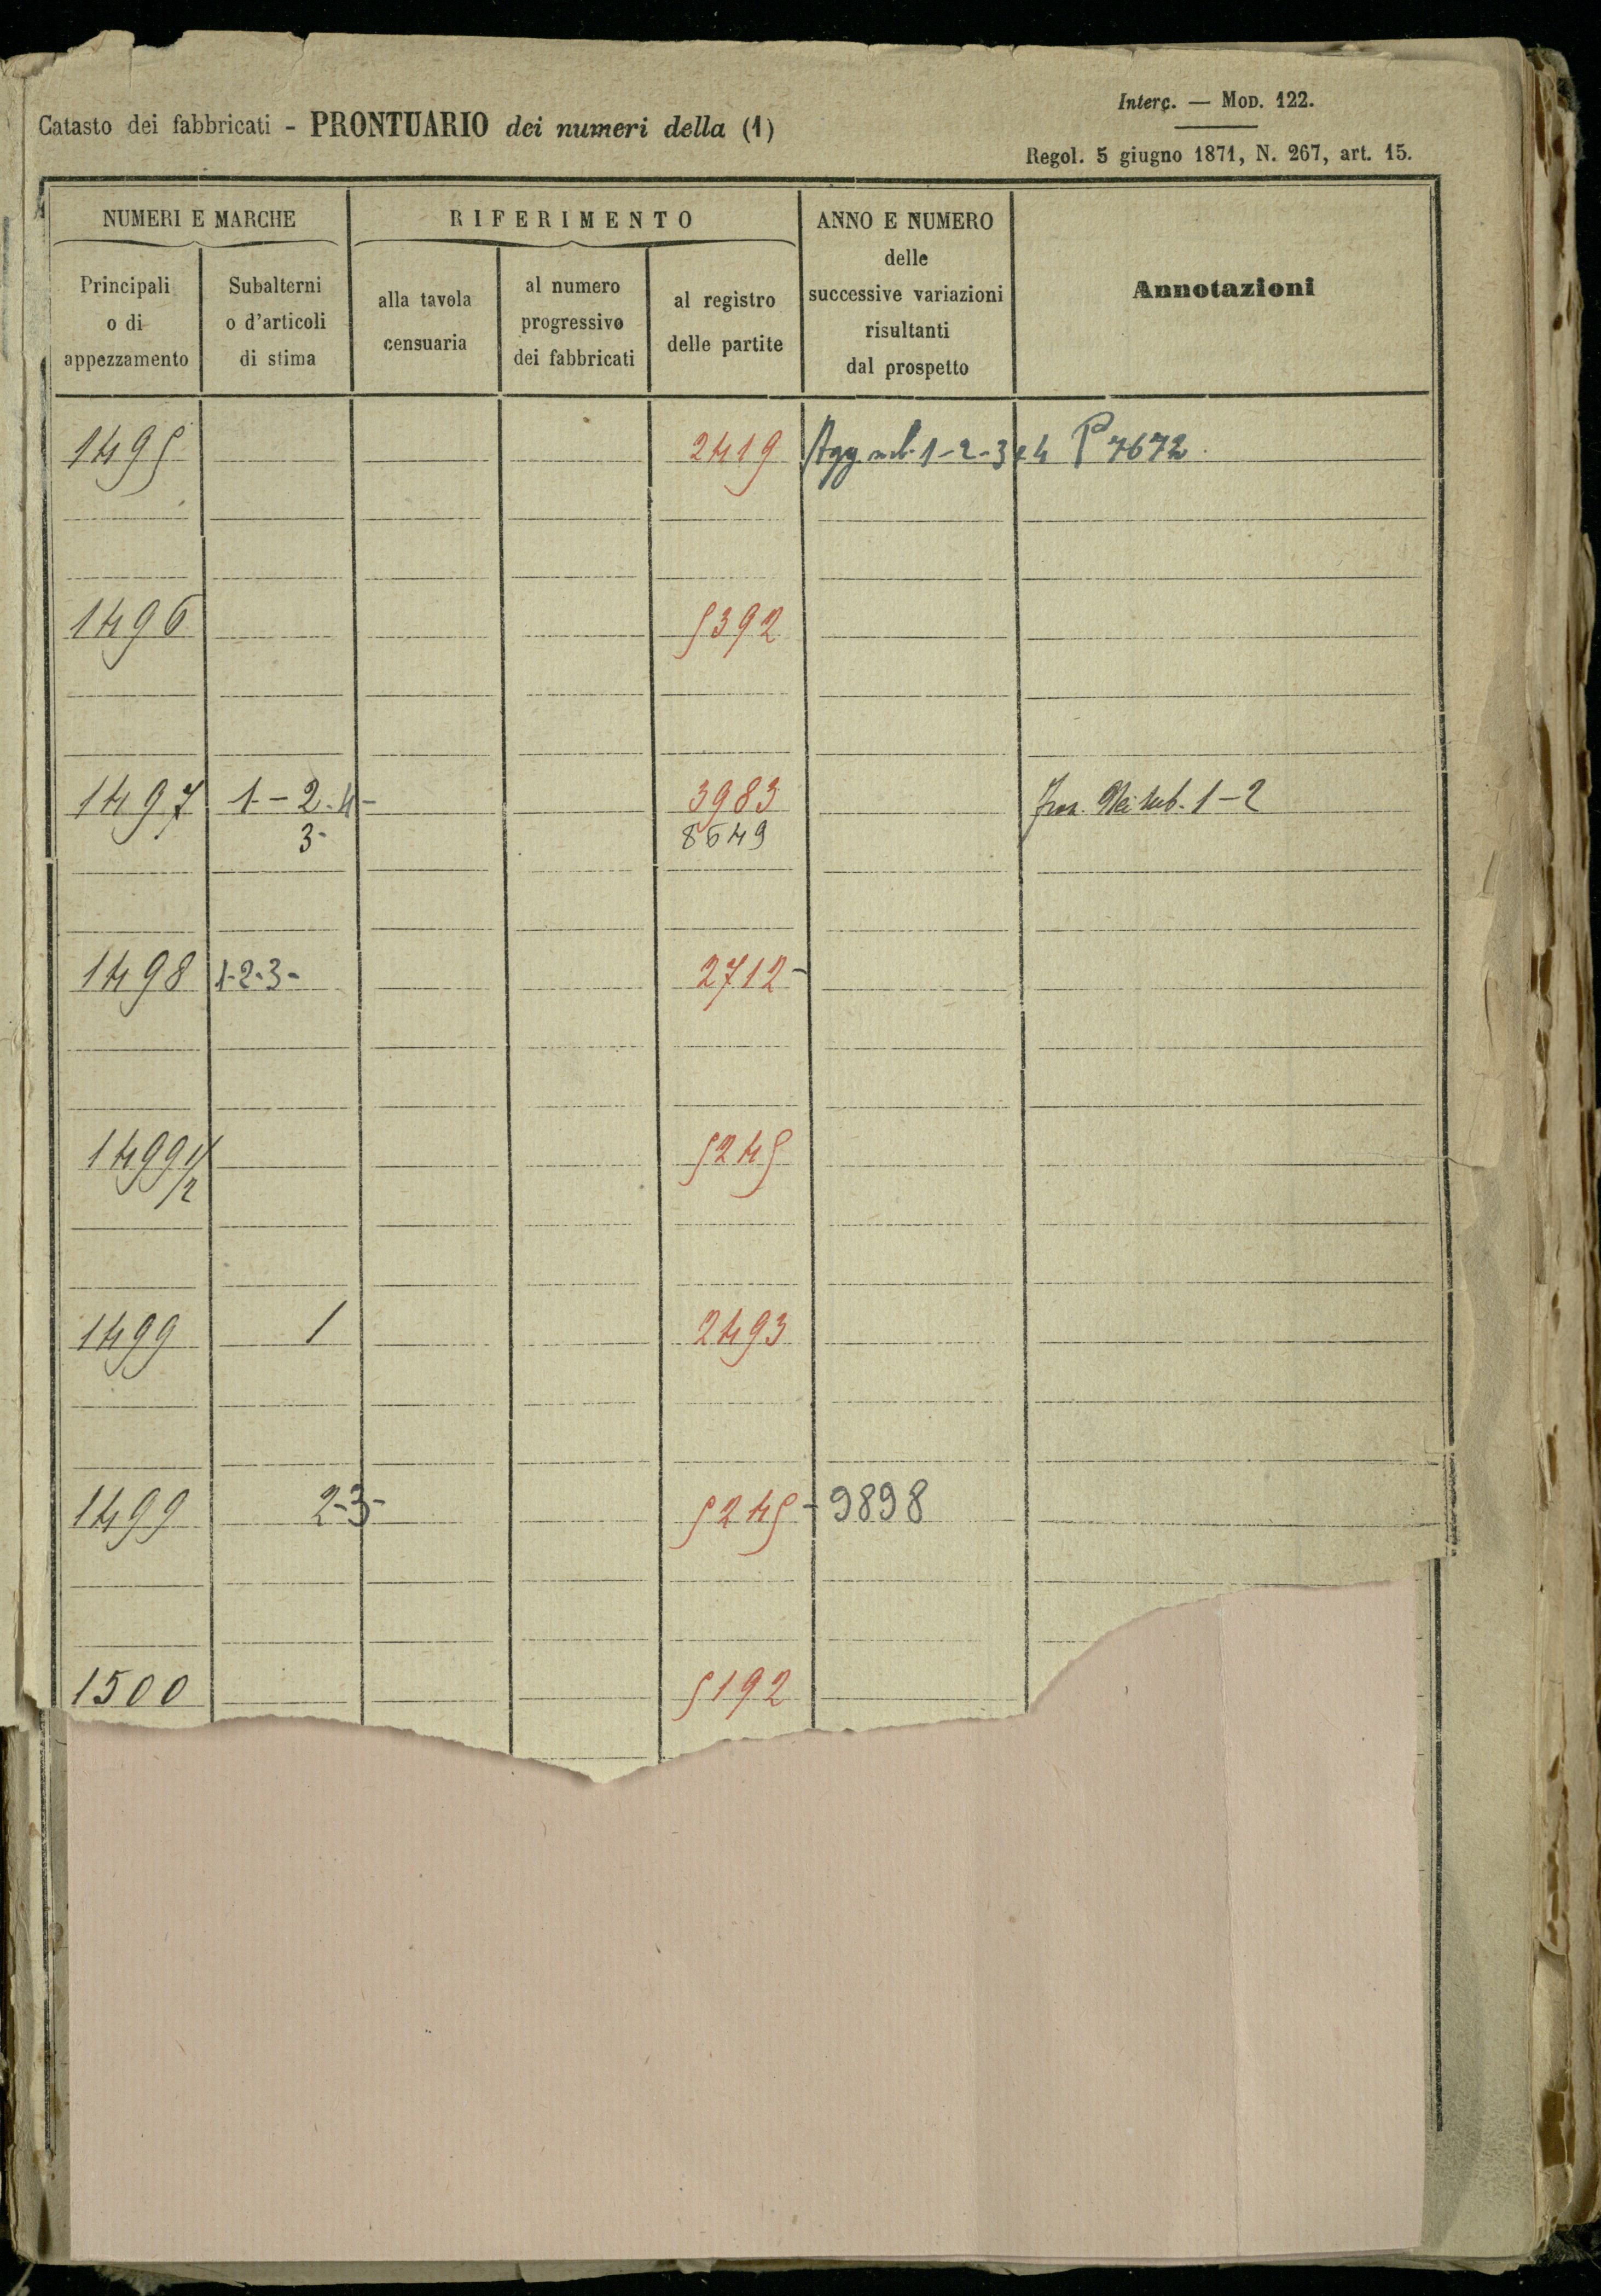 Catasto dei fabbricati - PRONTUARIO dei numeri della (1)
Interc. — MOD. 122.
Regol. 5 giugno 1871, N. 267, art. 15.
NUMERI E MARCHE
RIFERIMENTO
ANNO E NUMERO
delle
successive variazioni
risultanti
dal prospetto
Annotazioni
Principali
o di
appezzamento
Subalterni
o d'articoli
di stima
alla tavola
censuaria
al numero
progressivo
dei fabbricati
al registro
delle partite
1495 2419 Agg sub. 1-2-3 e 4 P 7672
1496 5392
1497 1-2-4- 3983 sub. 1-2
3- 8649
1498 1-2-3- 2712-
1499 1/2 5245
1499 1 2493
1499 2-3- 5245 - 9898
1500 5192